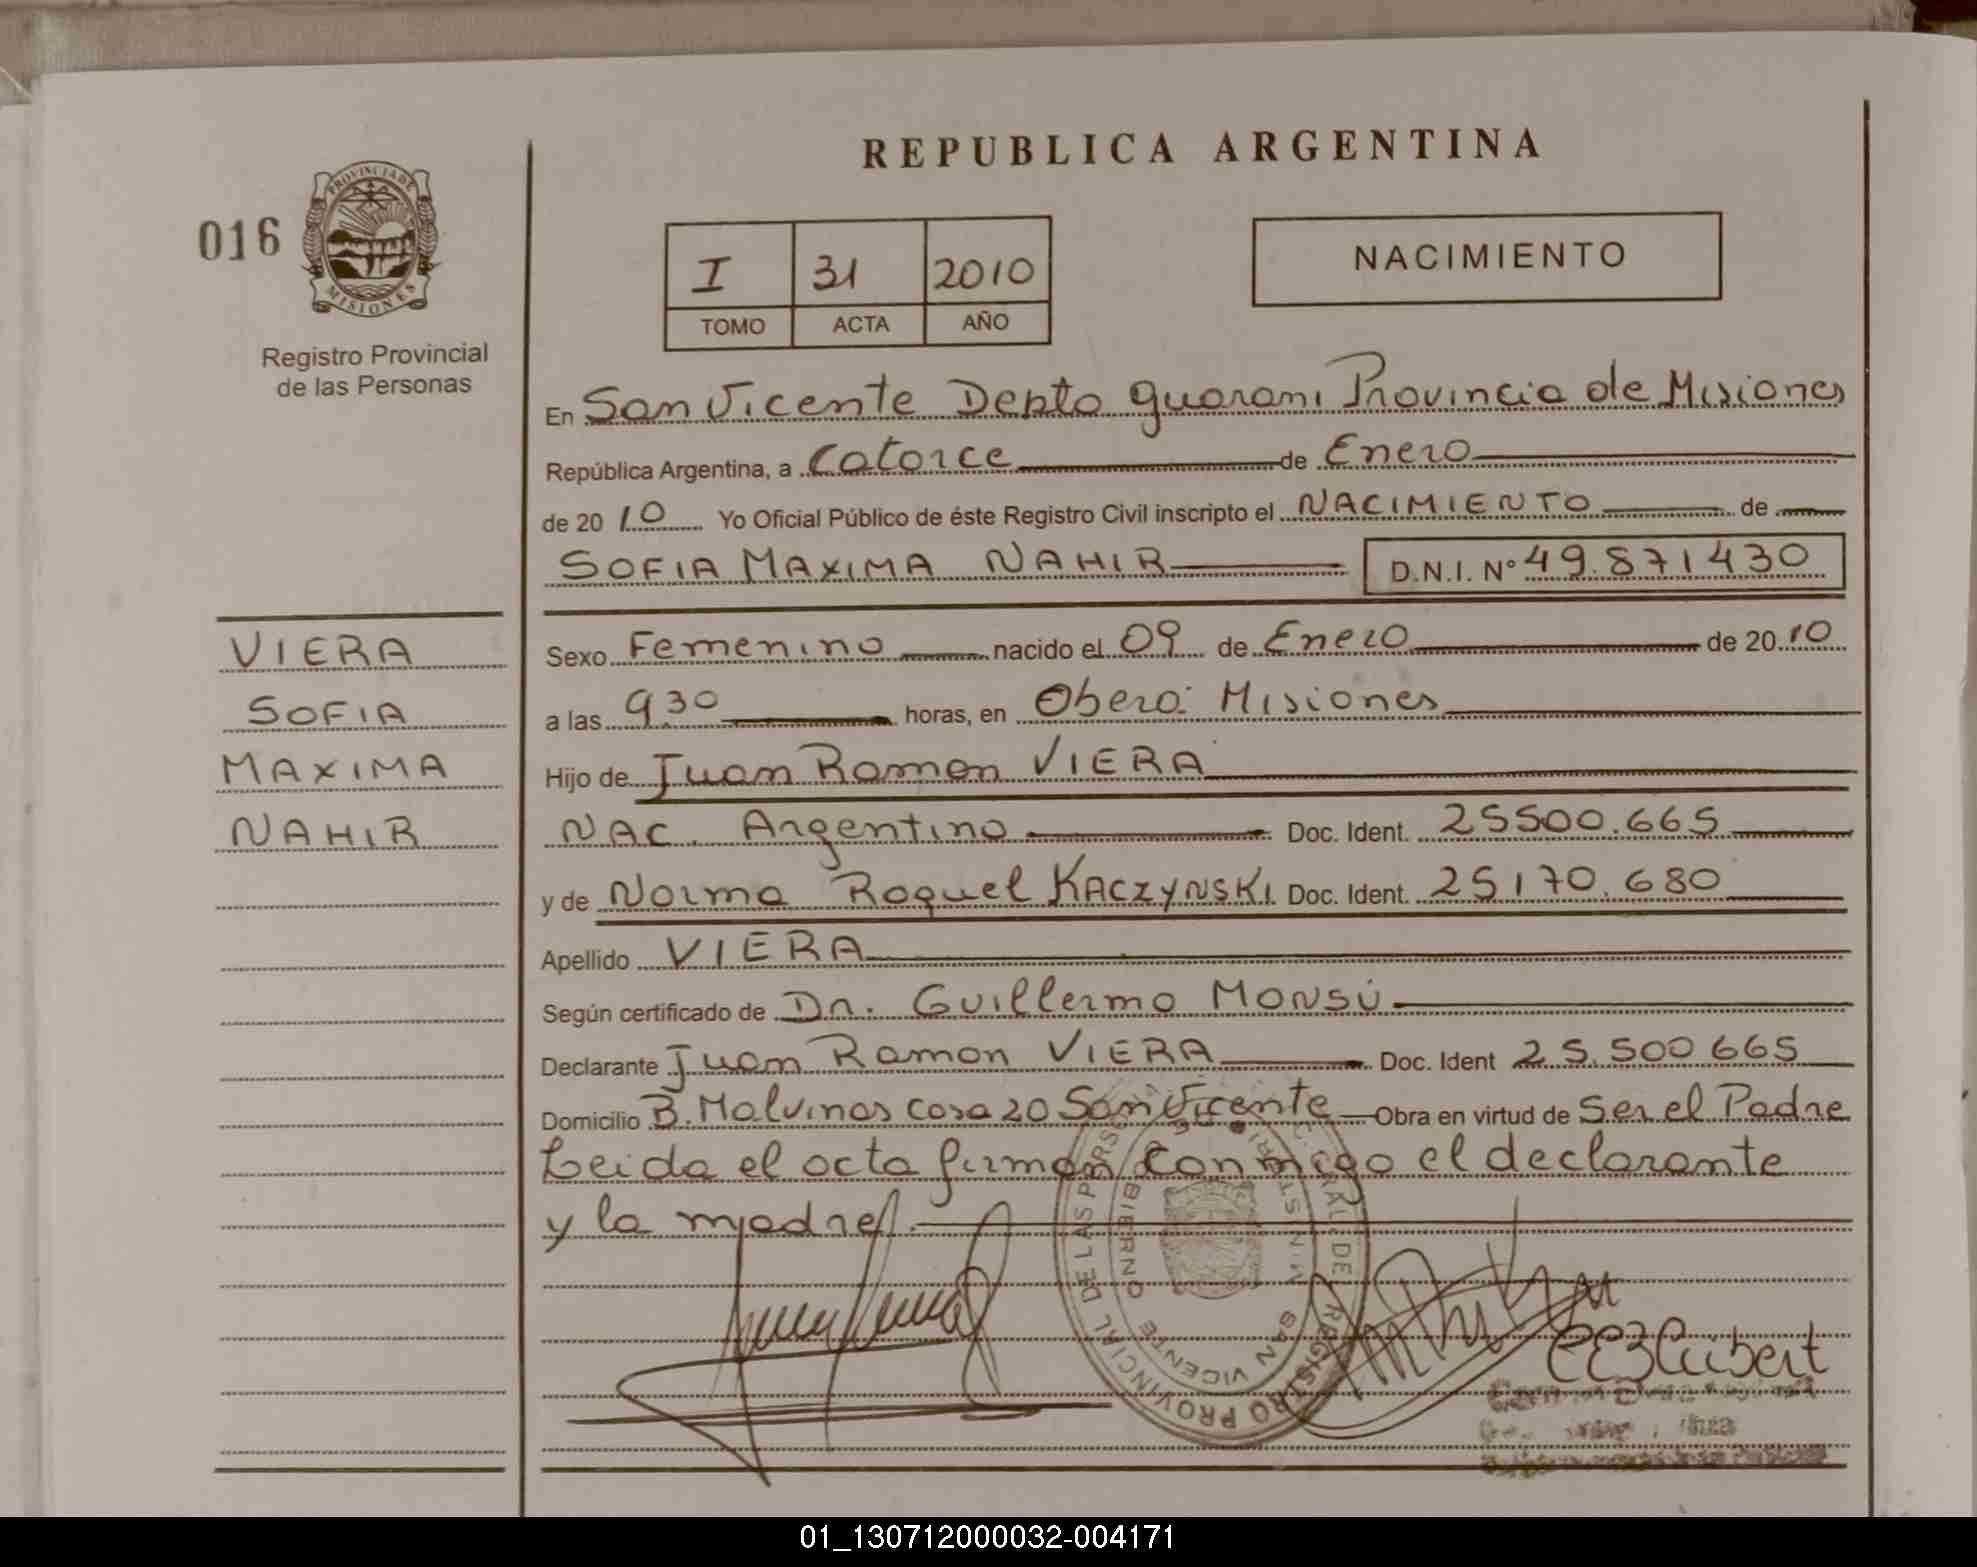 REPUBLICA ARGENTINA
016
PROVINCIA DE
MISIONES
Registro Provincial
de las Personas
I 31 2010
TOMO ACTA AÑO
NACIMIENTO
En San Vicente Depto guarani Provincia de Misiones
República Argentina, a Catorce de Enero
de 2010 Yo Oficial Público de éste Registro Civil inscripto el NACIMIENTO de
SOFIA MAXIMA NAHIR D.N.I. N° 49.871430
VIERA
SOFIA
MAXIMA
NAHIR
Sexo Femenino nacido el 09 de Enero de 2010
a las 9.30 horas, en Obera Misiones
Hijo de Juan Ramon VIERA
NAC. Argentino Doc. Ident. 25500.665
y de Norma Raquel KACZYNSKI Doc. Ident. 25170.680
Apellido VIERA
Según certificado de Dr. Guillermo MONSÚ
Declarante Juan Ramon VIERA Doc. Ident 25.500 665
Domicilio B. Malvinas casa 20 San Vicente Obra en virtud de Ser el Padre
Leida el acta firman conmigo el declarante
y la madre.
REGISTRO PROVINCIAL DE LAS
SAN VICENTE
01_130712000032-004171